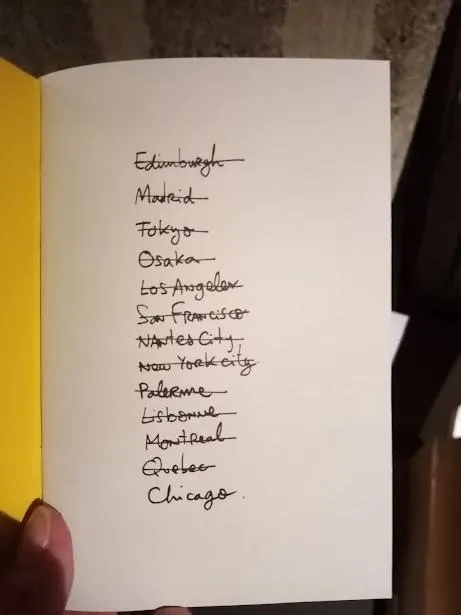 Edimburgh
Madrid
Tokyo
Osaka
Los Angeles
San Francisco
Nantes City
New York city
Palerme
Lisbonne
Montreal
Quebec
Chicago.